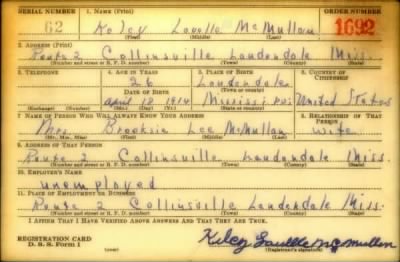 SERIAL NUMBER 1. NAME (Print) ORDER NUMBER
62 Kelcy Lavelle McMullan 1692
(First) (Middle) (Last)
2. ADDRESS (Print)
Route 2 Collinsville Lauderdale Miss.
(Number and street or R. F. D. number) (Town) (County) (State)
3. TELEPHONE 4. AGE IN YEARS 5. PLACE OF BIRTH 6. COUNTRY OF CITIZENSHIP
26 Lauderdale
(Town or county)
DATE OF BIRTH
April 18, 1914 Mississippi United States
(Exchange) (Number) (Mo.) (Day) (Yr.) (State or country)
7. NAME OF PERSON WHO WILL ALWAYS KNOW YOUR ADDRESS 8. RELATIONSHIP OF THAT PERSON
Mrs. Brooksie Lee McMullan wife
(Mr., Mrs., Miss) (First) (Middle) (Last)
9. ADDRESS OF THAT PERSON
Route 2 Collinsville Lauderdale Miss.
(Number and street or R. F. D. number) (Town) (County) (State)
10. EMPLOYER'S NAME
unemployed
11. PLACE OF EMPLOYMENT OR BUSINESS
Route 2 Collinsville Lauderdale Miss.
(Number and street or R. F. D. number) (Town) (County) (State)
I AFFIRM THAT I HAVE VERIFIED ABOVE ANSWERS AND THAT THEY ARE TRUE.
REGISTRATION CARD
D. S. S. Form 1 Kelcy Lavelle McMullan
(Registrant's signature)